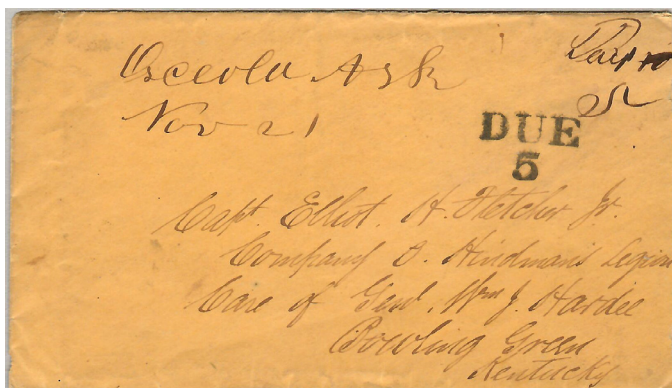 Osceola Ark
Nov 21
DUE
5
Capt. Elliot. H. Fletcher Jr.
Company Hindman's Legion
Care of Genl. Wm J. Hardee
Bowling Green
Kentucky